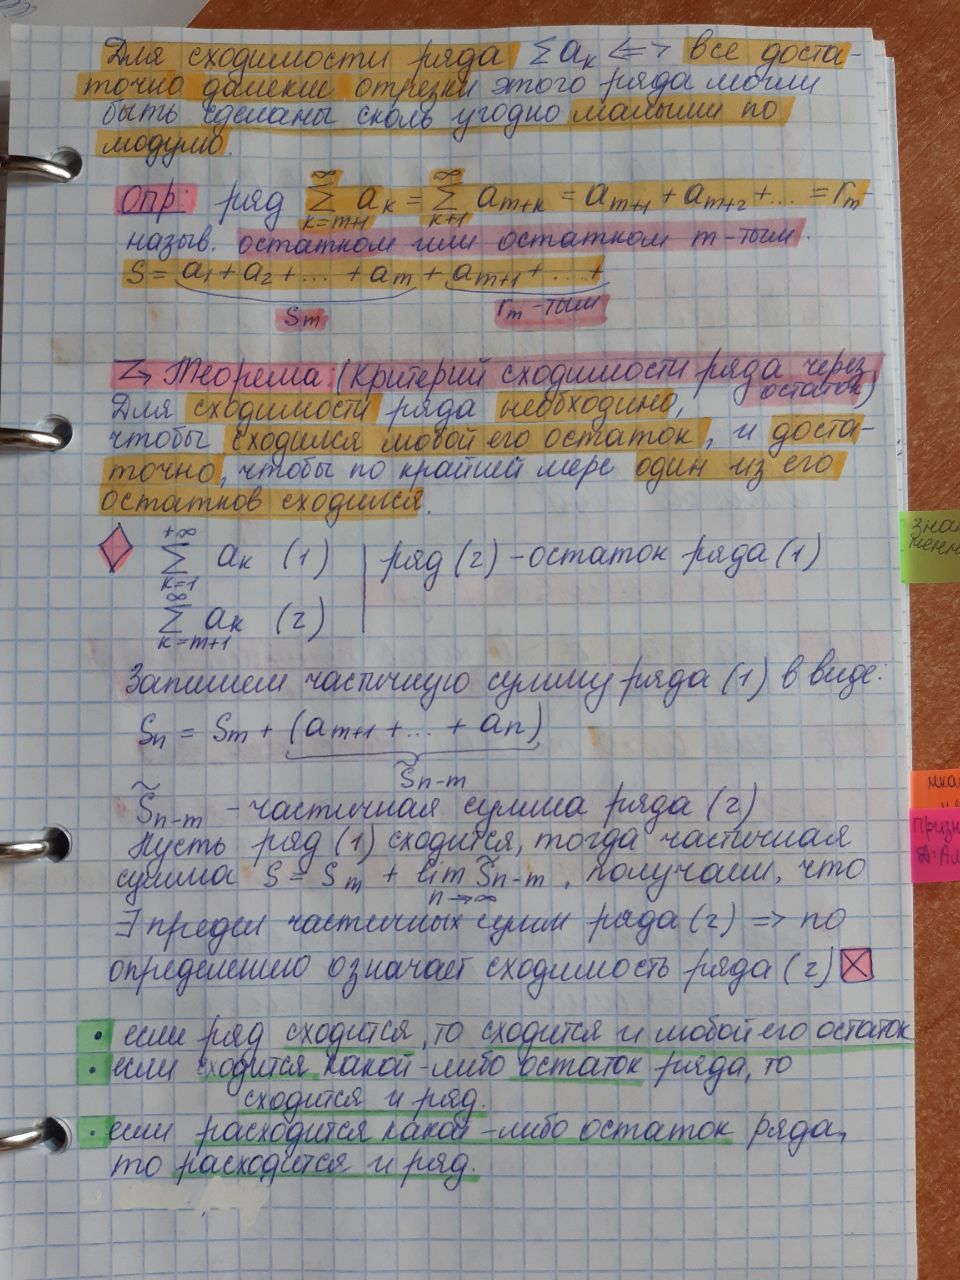 Для сходимости ряда Σaₖ <=> все доста-
точно далекие отрезки этого ряда могли
быть сделаны сколь угодно малыми по
модулю.
опр: ряд ∞ Σ k=m+1 aₖ = ∞ Σ k+1 aₘ₊ₖ = aₘ₊₁ + aₘ₊₂ + ... = rₘ -
назыв. остатком или остатком m-тым.
S = a₁ + a₂ + ... + aₘ + aₘ₊₁ + ... +
Sₘ rₘ -тым
Теорема: (Критерий сходимости ряда через
остаток)
Для сходимости ряда необходимо,
чтобы сходился любой его остаток, и доста-
точно, чтобы по крайней мере один из его
остатков сходился.
+∞ Σ k=1 aₖ (1) | ряд (2) - остаток ряда (1)
∞ Σ k=m+1 aₖ (2)
Запишем частичную сумму ряда (1) в виде:
Sₙ = Sₘ + (aₘ₊₁ + ... + aₙ)
S̃ₙ₋ₘ
S̃ₙ₋ₘ - частичная сумма ряда (2)
Пусть ряд (1) сходится, тогда частичная
сумма S = Sₘ + lim n→∞ S̃ₙ₋ₘ, получаем, что
∃ предел частичных сумм ряда (2) => по
определению означает сходимость ряда (2)
• если ряд сходится, то сходится и любой его остаток
• если сходится какой-либо остаток ряда, то
сходится и ряд.
• если расходится какой-либо остаток ряда,
то расходится и ряд.